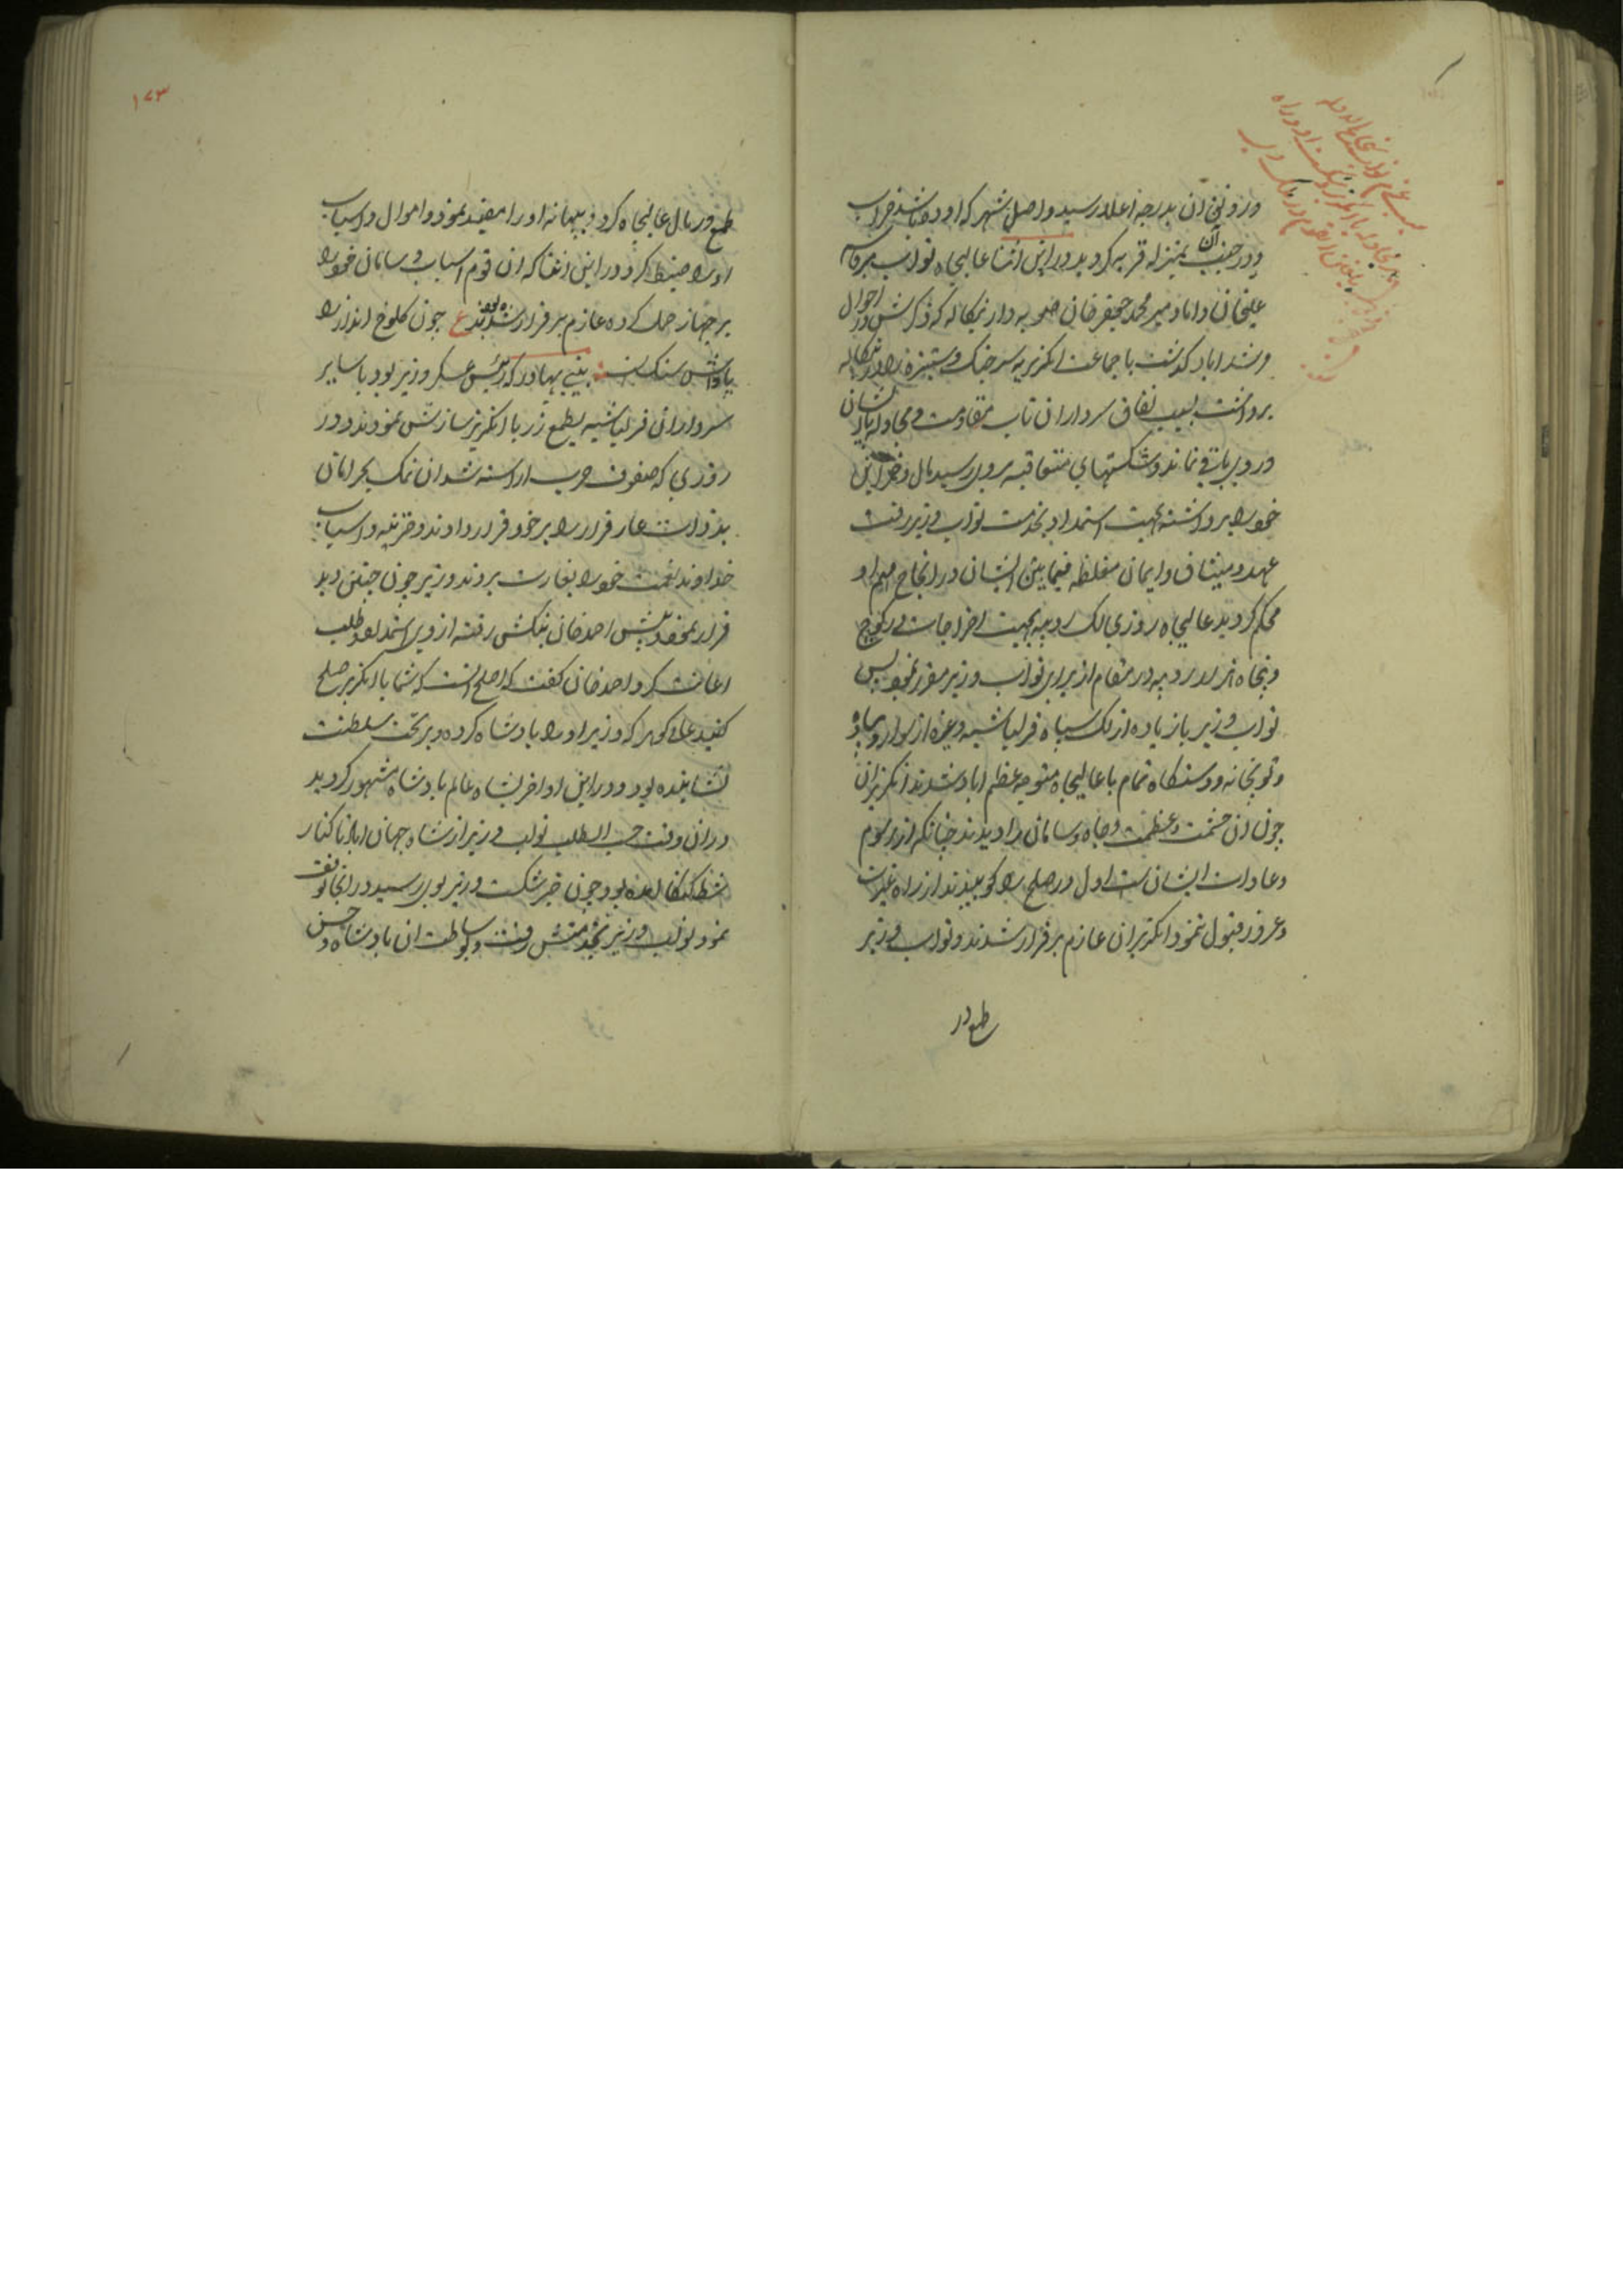 و رونق آن بدرجه اعلا رسید و اصل شهر که اوده باشد خراب
و در جنب آن بمنزله قریه گردید در این اثنا عالیجاه نواب میر قاسم
علیخان داماد میر محمد جعفر خان صوبه دار بنگاله که ذکرش در احوال
مرشداباد گذشت با جماعت انگریزیه سر جنگ و ستیزه را در بنگاله
برداشت بسبب نفاق سرداران تاب مقاومت و مجادله با ایشان
در وی باقی نماند و شکستهای متعاقبه بروی رسید مال و خزاین
خود را برداشته بجهت استمداد بخدمت نواب وزیر رفت
عهد و میثاق و ایمان مغلظه فیمابین ایشان در انجاح مهم او
محکم گردید عالیجاه روزی یک لک روپیه بجهت اخراجات در کوچ
و پنجاه هزار روپیه در مقام از برای نواب وزیر مقرر نمود پس
نواب وزیر با زیاده از لک سپاه قزلباشیه و غیره از سوار و پیاده
و توپخانه و دستگاه تمام با عالیجاه متوجه عظیم اباد شدند انگریزان
چون ان حشمت و عظمت و جاه و سامان را دیدند چنانکه از رسوم
و عادات ایشان است اول در صلح را کوبیدند از راه غیرت
و غرور قبول ننمود انگریزان عازم بر فرار شدند و نواب وزیر
طمع در
۱۷۳
طمع در مال عالیجاه کرد و ببهانه او را مقید نمود و اموال و اسباب
او را ضبط کرد و در این اثنا که ان قوم اسباب و سامان خود را
بر جهاز حمل کرده عازم بر فرار شده بودند ع چون کلوخ انداز را
پاداش سنگ است بینی بهادر که رئیس عسکر وزیر بود با سایر
سرداران قزلباشیه بطمع زر با انگریز سازش نمودند و در
روزی که صفوف حرب اراسته شد ان نمک بحرامان
بدذات عار فرار را بر خود قرار دادند و خزینه و اسباب
خداوند نعمت خود را بغارت بردند وزیر چون چنین دید
فرار نموده پیش احمد خان بنگش رفته از وی استمداد و طلب
اعانت کرد احمد خان گفت که اصلح انست که شما با انگریز صلح
کنید عالی گوهر که وزیر او را بادشاه کرده و بر تخت سلطنت
نشانیده بود و در این اواخر بشاه عالم بادشاه مشهور گردید
در ان وقت حسب الطلب نواب وزیر از شاه جهان اباد تا کنار
شط گنگا امده بود چون خبر شکست وزیر بوی رسید در انجا توقف
نمود نواب وزیر بخدمتش رفت و بوساطت ان بادشاه و حسن